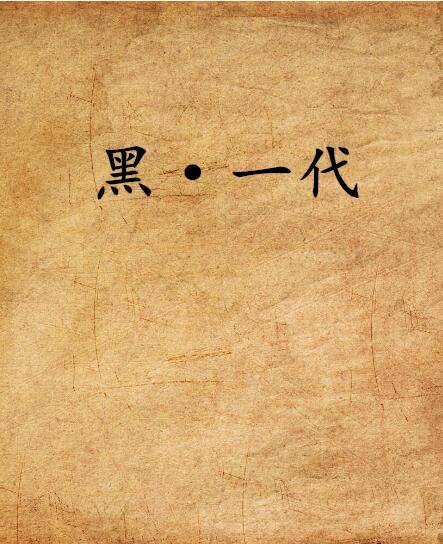 黑·一代